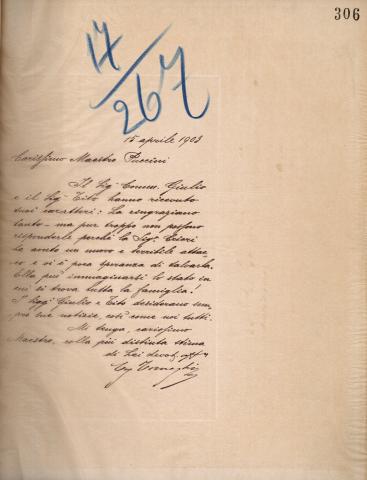 306
17/267
15 aprile 1903
Carissimo Maestro Puccini
Il Sig. Comm. Giulio
e il Sig. Tito hanno ricevuto
suoi caratteri: La ringraziano
tanto - ma pur troppo non possono
risponderle perchè la Sig.
ha avuto un nuovo e terribile attac-
co e vi è poca speranza di salvarla.
Ella può immaginarsi lo stato in
cui si trova tutta la famiglia!
I Sigg. Giulio e Tito desiderano sem-
pre sue notizie, così come noi tutti.
Mi tenga, carissimo
Maestro, colla più distinta stima
di Lei devot.